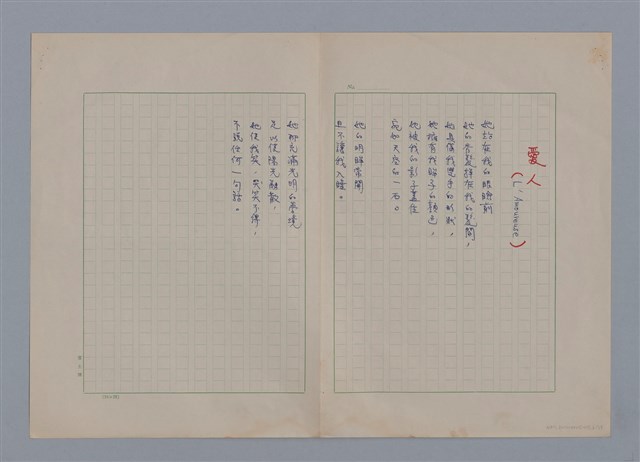 愛人
(L'Amoureuse)
她站在我的眼瞼前
她的秀髮雜在我的髮間，
她具備我思手的形狀，
她擁有我眸子的顏色，
她被我的影子蓋住
宛如天空的一石。
她的明眸常開
且不讓我入睡。
她那充滿光明的夢境
足以使陽光融散，
她使我笑，哭笑不得，
不說任何一句話。